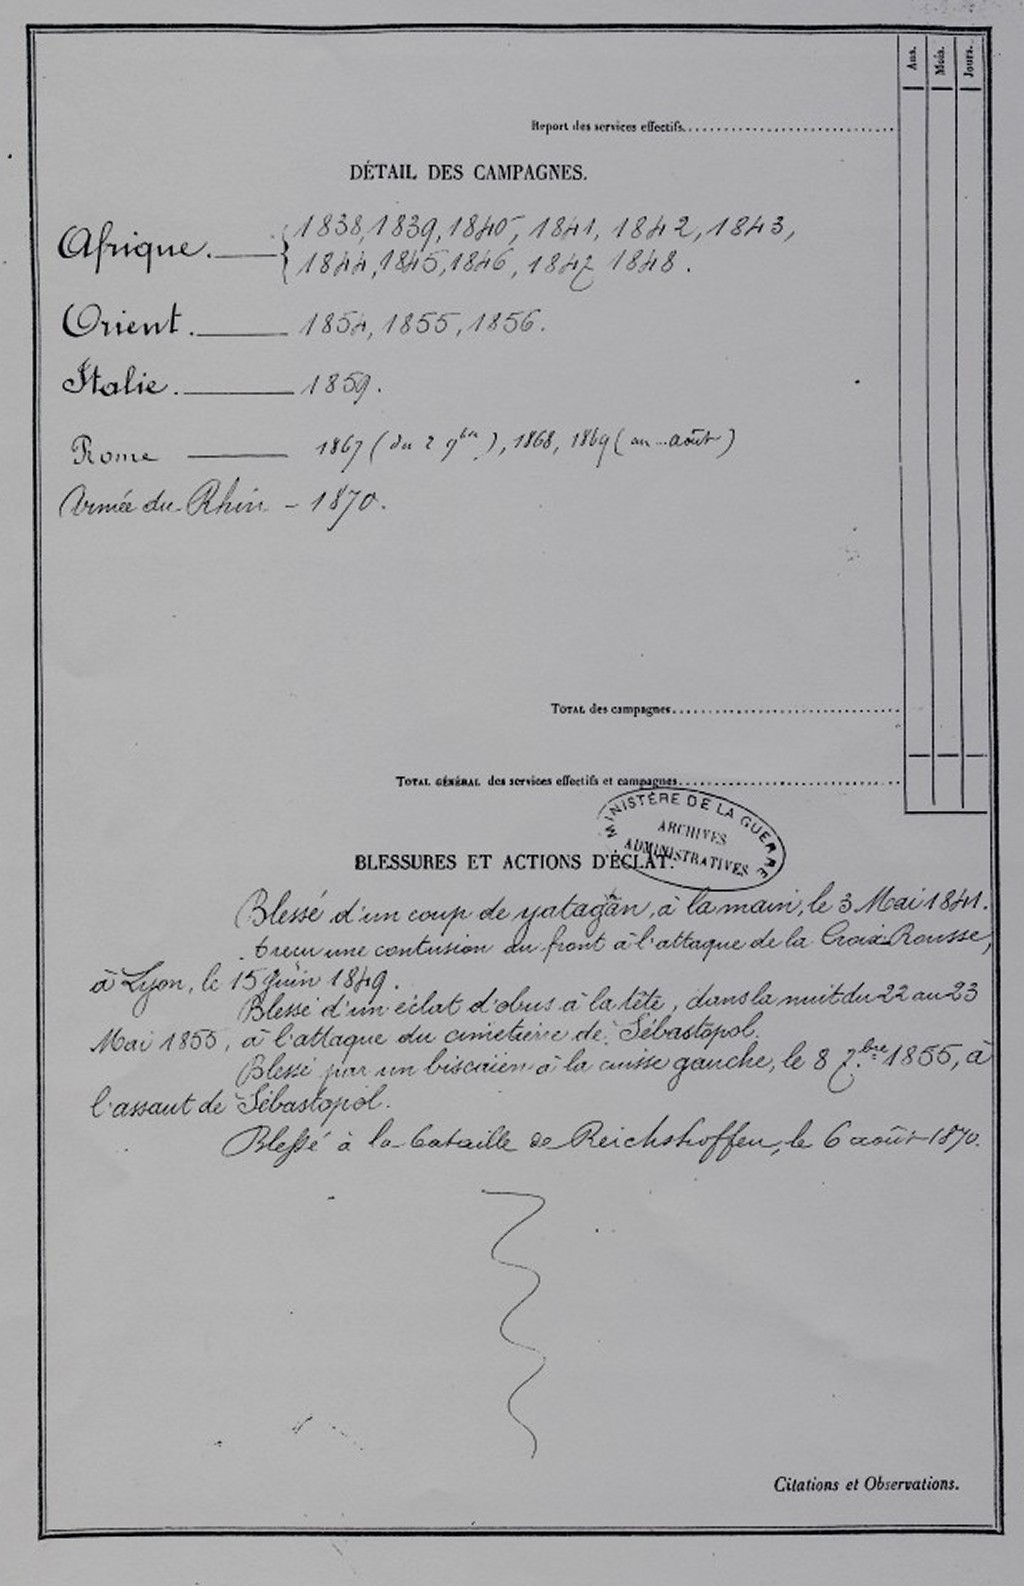 Ans. Mois. Jours.
Report des services effectifs
DÉTAIL DES CAMPAGNES.
Afrique. { 1838, 1839, 1840, 1841, 1842, 1843,
1844, 1845, 1846, 1847 1848.
Orient. 1854, 1855, 1856.
Italie. 1859.
Rome 1867 (du 2 9bre), 1868, 1869 (au … août)
Armée du Rhin – 1870.
TOTAL des campagnes
TOTAL GÉNÉRAL des services effectifs et campagnes
MINISTÈRE DE LA GUERRE
ARCHIVES
ADMINISTRATIVES
BLESSURES ET ACTIONS D'ÉCLAT.
Blessé d'un coup de yatagan, à la main, le 3 Mai 1841.
a reçu une contusion au front à l'attaque de la Croix-Rousse,
à Lyon, le 15 Juin 1849.
Blessé d'un éclat d'obus à la tête, dans la nuit du 22 au 23
Mai 1855, à l'attaque du cimetière de Sébastopol.
Blessé par un biscaïen à la cuisse gauche, le 8 7.bre 1855, à
l'assaut de Sébastopol.
Blessé à la bataille de Reichshoffen, le 6 août 1870.
Citations et Observations.